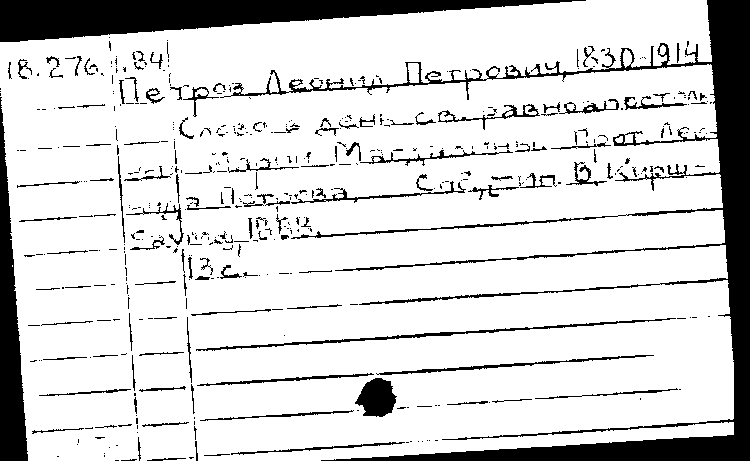 18.276.1.84
Петров Леонид Петрович, 1830-1914
Слово в день св. равноапостоль-
ной Марии Магдалины. Прот. Лео-
нида Петрова. Спб., тип. В. Кирш-
баума, 1888.
13 с.